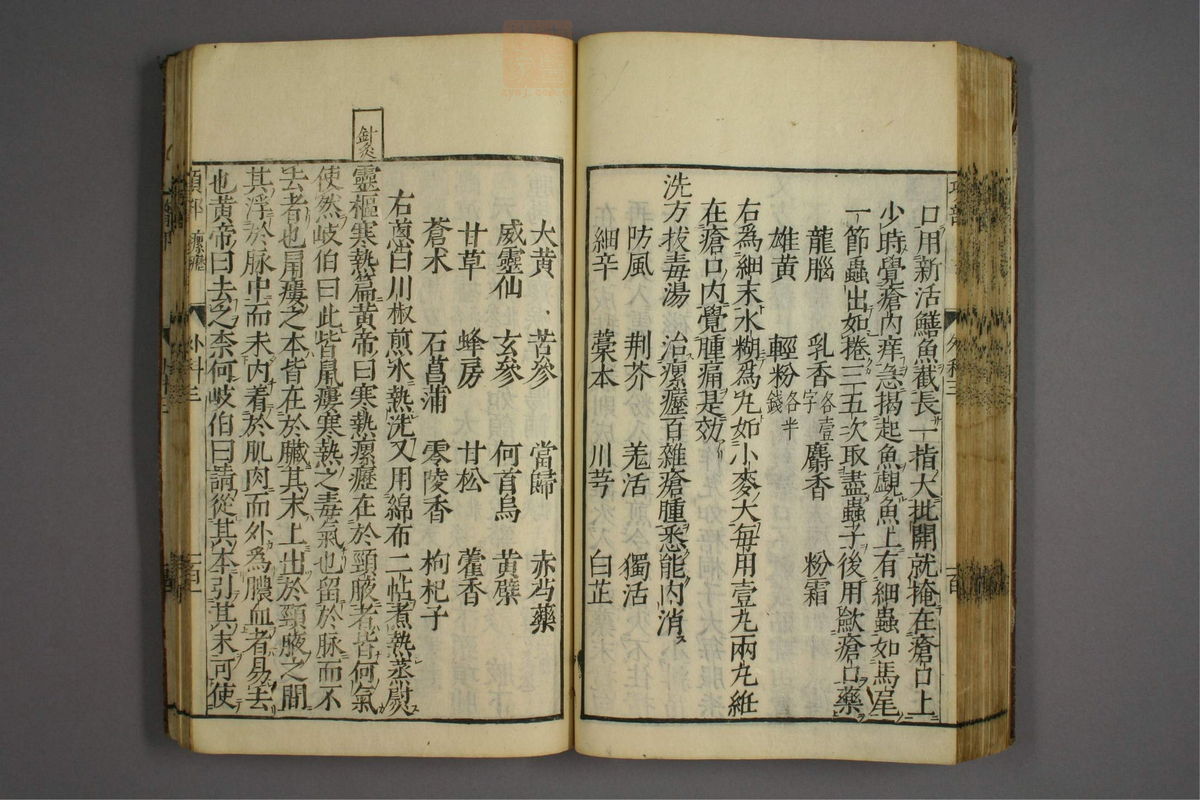 口用新活鱔魚截長一指大批開就掩在瘡口上
少時覺瘡內痒急揭起魚覷魚上有細蟲如馬尾
一節蟲出如捲三五次取盡蟲子後用歛瘡口藥
龍腦 乳香各壹字 麝香 粉霜
雄黃 輕粉各半錢
右為細末水糊為丸如小麥大每用壹丸兩丸維
在瘡口內覺腫痛是効
洗方拔毒湯 治瘰癧百雜瘡腫悉能內消
防風 荆芥 羗活 獨活
細辛 藁本 川芎 白芷
大黃 苦參 當歸 赤芍藥
威靈仙 玄參 何首烏 黃蘗
甘草 蜂房 甘松 藿香
蒼木 石菖蒲 零陵香 枸杞子
右蔥白川椒煎水熱洗又用綿布二帖煮熱蒸熨
針灸
靈樞寒熱扁黃帝曰寒熱瘰癧在於頸腋者皆何氣
使然岐伯曰此皆鼠瘻寒熱之毒氣也留於脉而不
去者也用瘻之本皆在於臟其末上出於頸腋之間
其浮於脉中而未內着於肌肉而外為膿血者易去
也黃帝曰去之柰何岐伯曰請從其本引其末可使
項部 瘰癧 外科三 一百一